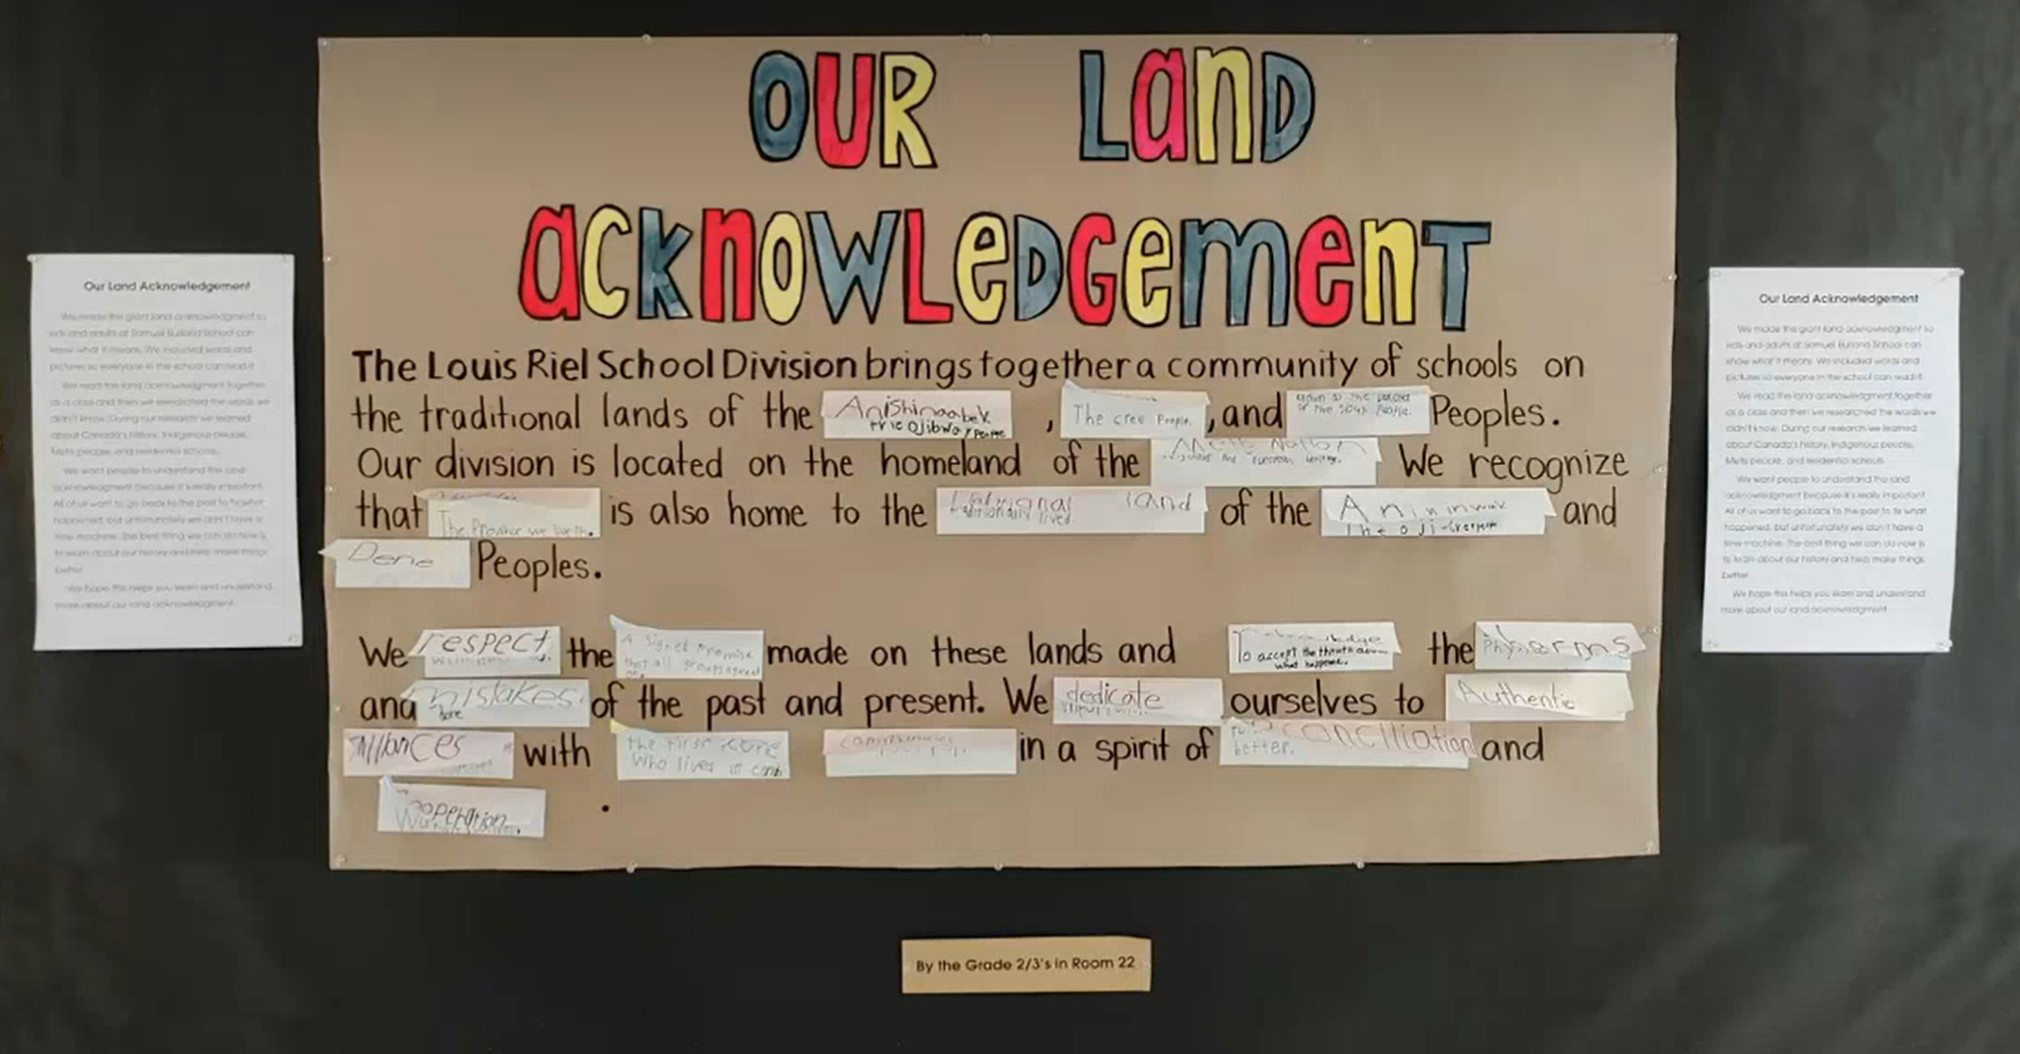 OUR LAND
ACKNOWLEDGEMENT
The Louis Riel School Division brings together a community of schools on
the traditional lands of the Anishinaabek , The cree People. , and Peoples.
the Ojibway People
Our division is located on the homeland of the We recognize
that The Province we live in. is also home to the land of the Aniniwak and
Dene Peoples.
We respect the A signed promise made on these lands and To accept the the
that all groups agreed
what happened.
and mistakes of the past and present. We dedicate ourselves to Authentic
alliances with the first in a spirit of reconciliation and
who lives in
better.
cooperation .
By the Grade 2/3's in Room 22
Our Land Acknowledgement
We made this giant land acknowledgment so
kids and adults at Samuel Burland School can
know what it means. We included words and
pictures so everyone in the school can read it.
We read the land acknowledgment together
as a class and then we researched the words we
didn't know. During our research we learned
about Canada's history, Indigenous people,
Metis people, and residential schools.
We want people to understand the land
acknowledgment because it's really important.
All of us want to go back to the past to fix what
happened, but unfortunately we don't have a
time machine. The best thing we can do now is
to learn about our history and help make things
better.
We hope this helps you learn and understand
more about our land acknowledgment.
Our Land Acknowledgement
We made this giant land acknowledgment so
kids and adults at Samuel Burland School can
know what it means. We included words and
pictures so everyone in the school can read it.
We read the land acknowledgment together
as a class and then we researched the words we
didn't know. During our research we learned
about Canada's history, Indigenous people,
Metis people, and residential schools.
We want people to understand the land
acknowledgment because it's really important.
All of us want to go back to the past to fix what
happened, but unfortunately we don't have a
time machine. The best thing we can do now is
to learn about our history and help make things
better.
We hope this helps you learn and understand
more about our land acknowledgment.